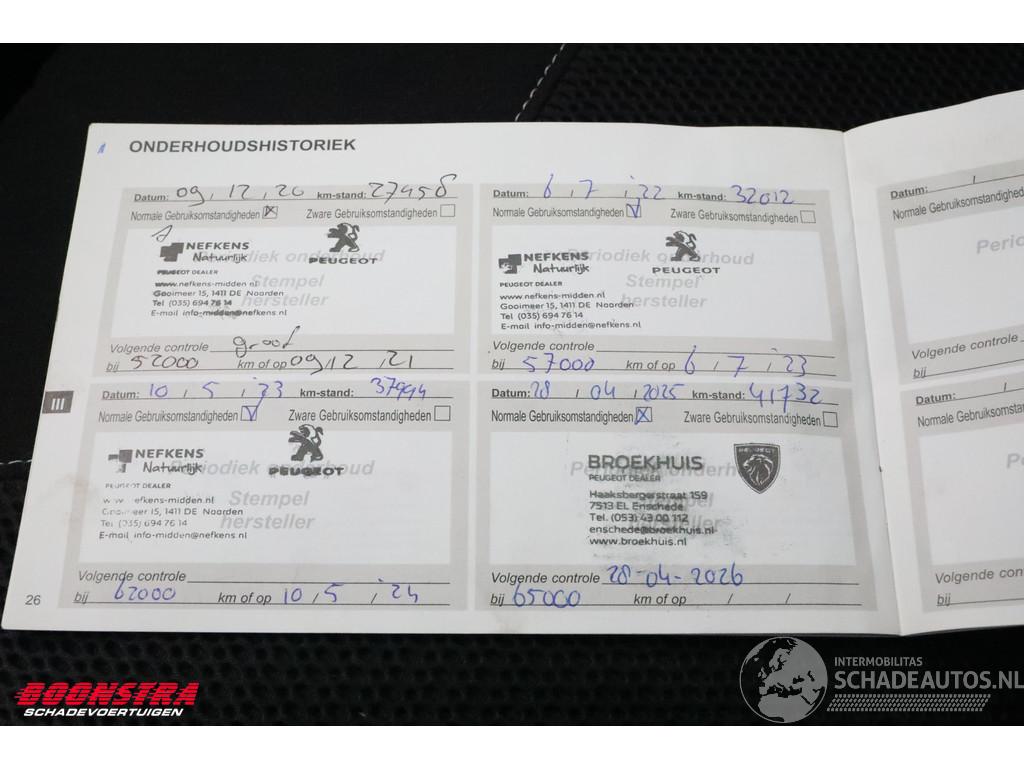 ONDERHOUDSHISTORIEK
Datum: 09, 12, 20 km-stand: 27458
Normale Gebruiksomstandigheden Zware Gebruiksomstandigheden
NEFKENS
Natuurlijk
PEUGEOT
Periodiek onderhoud
PEUGEOT DEALER
Stempel
hersteller
www.nefkens-midden.nl
Gooimeer 15, 1411 DE Naarden
Tel (035) 694 76 14
E-mail info-midden@nefkens.nl
Volgende controle groot
bij 52000 km of op 09/12, 21
Datum: 6, 7, '22 km-stand: 32012
Normale Gebruiksomstandigheden Zware Gebruiksomstandigheden
NEFKENS
Natuurlijk
PEUGEOT
Periodiek onderhoud
PEUGEOT DEALER
Stempel
hersteller
www.nefkens-midden.nl
Gooimeer 15, 1411 DE Naarden
Tel (035) 694 76 14
E-mail info-midden@nefkens.nl
Volgende controle
bij 57000 km of op 6, 7, '23
Datum: 10, 5, '23 km-stand: 37994
Normale Gebruiksomstandigheden Zware Gebruiksomstandigheden
NEFKENS
Natuurlijk
PEUGEOT
Periodiek onderhoud
PEUGEOT DEALER
Stempel
hersteller
nefkens-midden.nl
Gooimeer 15, 1411 DE Naarden
Tel (035) 694 76 14
E-mail info-midden@nefkens.nl
Volgende controle
bij 62000 km of op 10, 5, '24
Datum: 28, 04, 2025 km-stand: 41732
Normale Gebruiksomstandigheden Zware Gebruiksomstandigheden
BROEKHUIS
PEUGEOT
Periodiek onderhoud
PEUGEOT DEALER
Stempel
hersteller
Haaksbergerstraat 159
7513 EL Enschede
Tel. (053) 43 00 112
enschede@broekhuis.nl
www.broekhuis.nl
Volgende controle 28-04-2026
bij 65000 km of op / /
III
26
Datum: /
Normale Gebruiksomstandigheden
Period
Volgende controle
bij
Datum: /
Normale Gebruiksomsta
Per
Volgende controle
bij
BOONSTRA
SCHADEVOERTUIGEN
INTERMOBILITAS
SCHADEAUTOS.NL